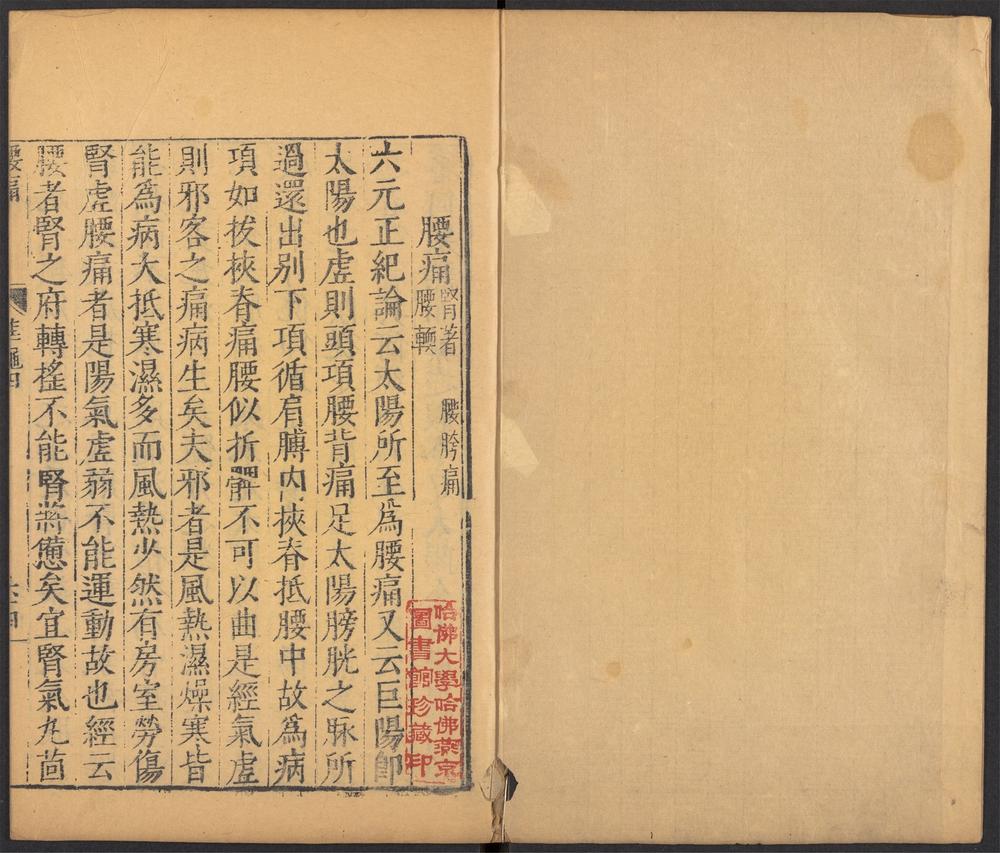 腰痛 腎著 腰輭 腰胯痛
六元正紀論云太陽所至爲腰痛又云巨陽卽
太陽也虛則頭項腰背痛足太陽膀胱之脉所
過還出别下項循肩膊内挾脊抵腰中故爲病
項如拔挾脊痛腰似折髀不可以曲是經氣虛
則邪客之痛病生矣夫邪者是風熱濕燥寒皆
能爲病大抵寒濕多而風熱少然有房室勞傷
腎虛腰痛者是陽氣虛弱不能運動故也經云
腰者腎之府轉搖不能腎將憊矣宜腎氣丸茴
腰痛
哈佛大學哈佛燕京
圖書館珍藏印